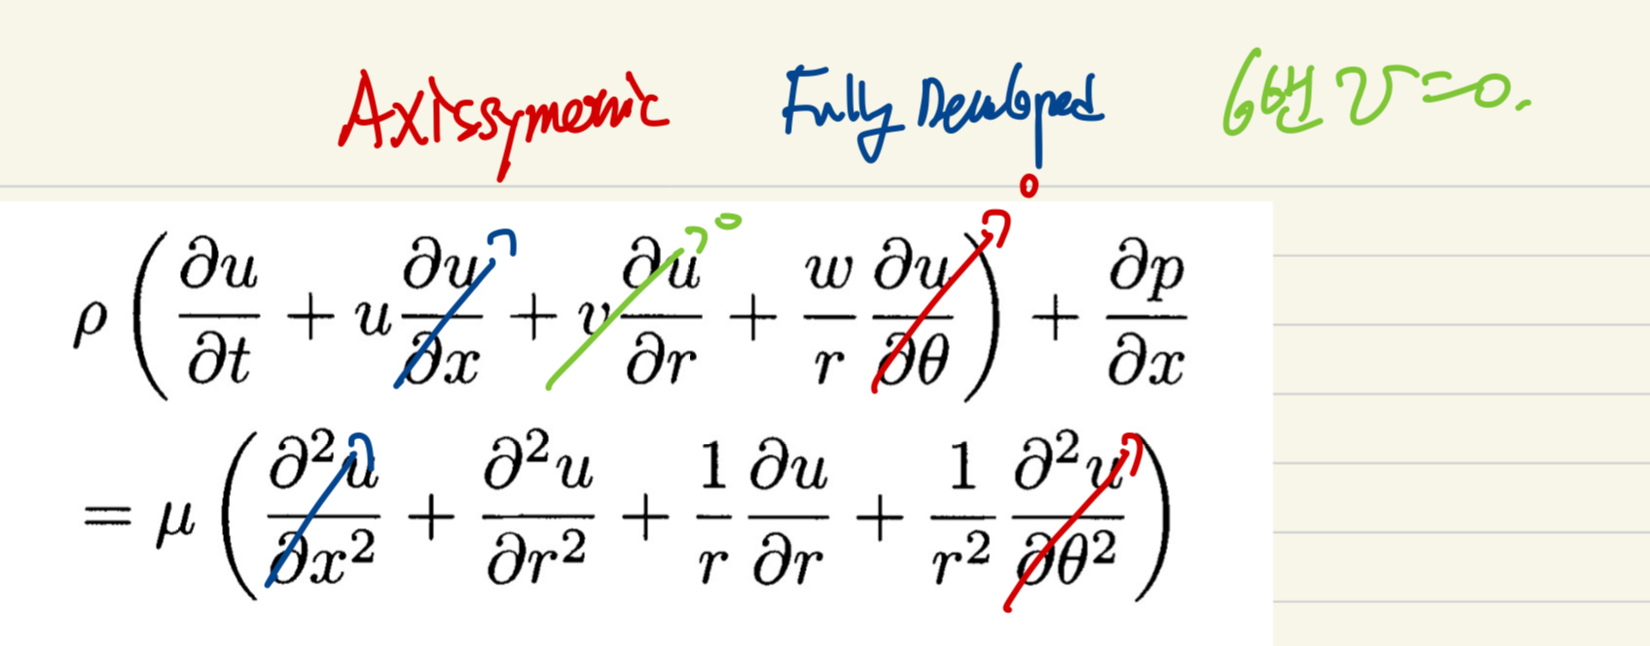 Axissymetric Fully Developed 6번 v=0.
0
0
ρ(∂u/∂t + u ∂u/∂x + v ∂u/∂r + w/r ∂u/∂θ) + ∂p/∂x
= μ(∂²u/∂x² + ∂²u/∂r² + 1/r ∂u/∂r + 1/r² ∂²u/∂θ²)